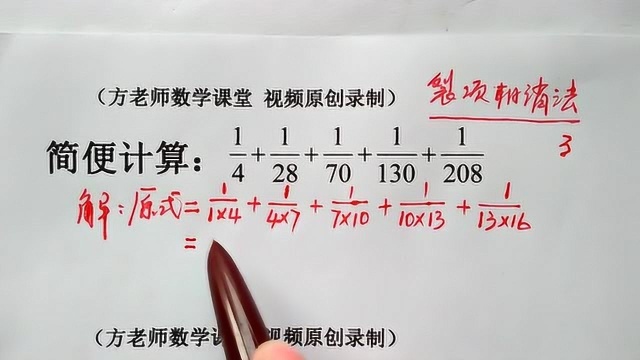 （方老师数学课堂 视频原创录制）
裂项相消法
3
简便计算：1/4+1/28+1/70+1/130+1/208
解：原式=1/1×4+1/4×7+1/7×10+1/10×13+1/13×16
=
（方老师数学课 视频原创录制）